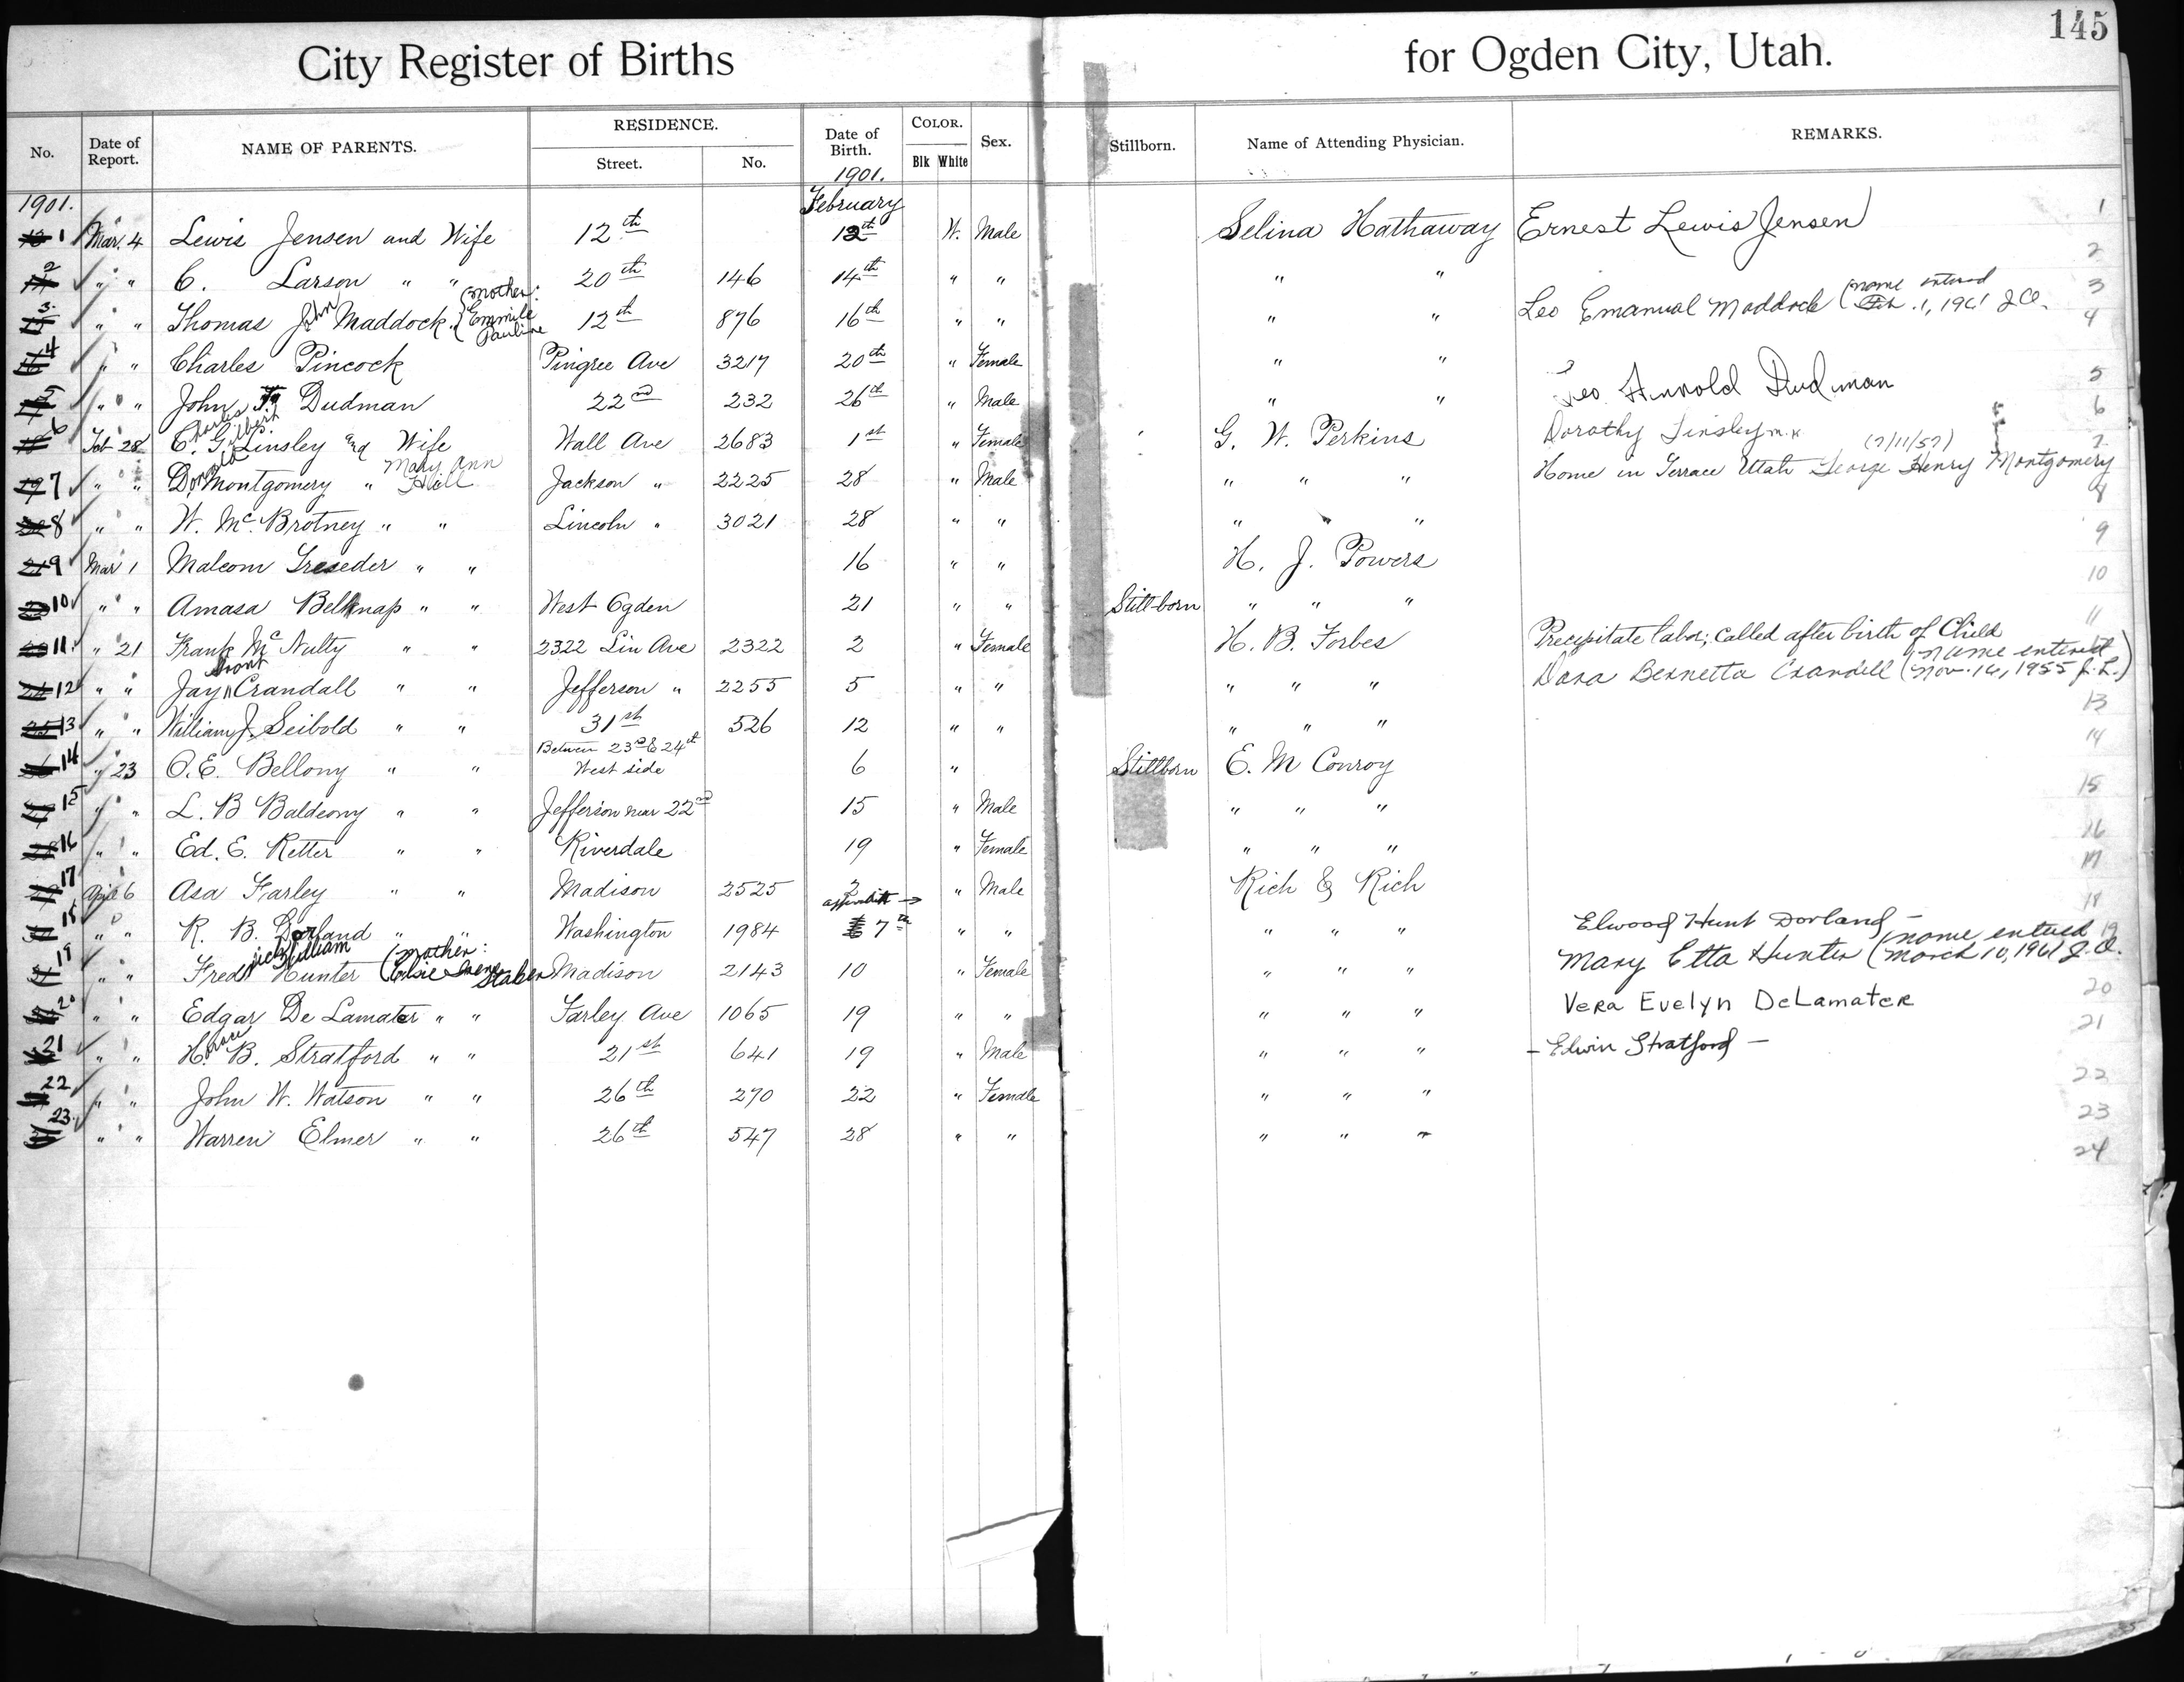 145
City Register of Births for Ogden City, Utah.
No. Date of Report. NAME OF PARENTS. RESIDENCE. Street. No. Date of Birth. COLOR. Blk White Sex. Stillborn. Name of Attending Physician. REMARKS.
1901. 1901. February
1 Mar. 4 Lewis Jensen and Wife 12th 12th W. Male Selina Hathaway Ernest Lewis Jensen 1
2 " " C. Larson " " 20th 146 14th " " " " 2
3 " " Thomas John Maddock (mother: Emmile Pauline 12th 876 16th " " " " Leo Emanual Maddock (name entered Feb. 1, 1961 J.O. 3
4 " " Charles Pincock Pingree Ave 3217 20th " Female " " 4
5 " " John Dudman 22nd 232 26th " Male " " Leo Arnold Dudman 5
6 Feb 28 Charles Gilbert Linsley and Wife Wall Ave 2683 1st " Female G. W. Perkins Dorothy Linsley 6
7 " " Donald Montgomery " Mary Ann Hill Jackson " 2225 28 " Male " " " Home in Terrace Utah George Henry Montgomery (7/11/57) 7
8 " " W. McBrotney " " Lincoln " 3021 28 " " " " " 8
9 Mar 1 Malcom Treseder " " 16 " " H. J. Powers 9
10 " " Amasa Belknap " " West Ogden 21 " " Still-born " " " 10
11. " 21 Frank McNulty " " 2322 Lin Ave 2322 2 " Female H. B. Forbes Precipitate labor; called after birth of Child 11
12 " " Jay Crandall " " Jefferson " 2255 5 " " " " " Dara Bernetta Crandell (name entered Nov. 16, 1955 J.L.)
13 " " William J. Seibold " " 31st 526 12 " " " " " 13
14 " 23 O.E. Bellony " " Between 23rd & 24th West side 6 " Stillborn E. M Conroy 14
15 " " L. B Baldsony " " Jefferson near 22nd 15 " Male " " " 15
16 " " Ed. E. Retter " " Riverdale 19 " Female " " " 16
17 April 6 Asa Farley " " Madison 2525 2 " Male Rich & Rich 17
18 " " R. B. Dorland " " Washington 1984 7th " " " " " Elwood Hunt Dorland - 18
19 " " Fredrick William Hunter (mother: Elsie Irene Staker Madison 2143 10 " Female " " " Mary Etta Hunter (name entered March 10, 1961 J.O. 19
20 " " Edgar De Lamater " " Farley Ave 1065 19 " " " " " Vera Evelyn DeLamater 20
21 " " Horace B. Stratford " " 21st 641 19 " Male " " " - Edwin Stratford - 21
22 " " John W. Watson " " 26th 270 22 " Female " " " 22
23. " " Warren Elmer " " 26th 547 28 " " " " " 23
24